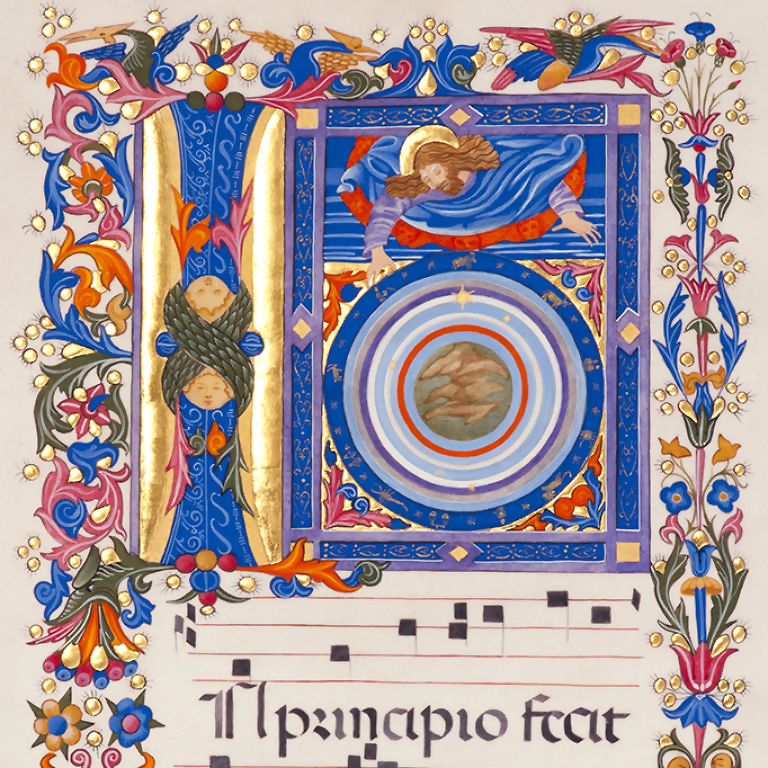 IN principio fecit